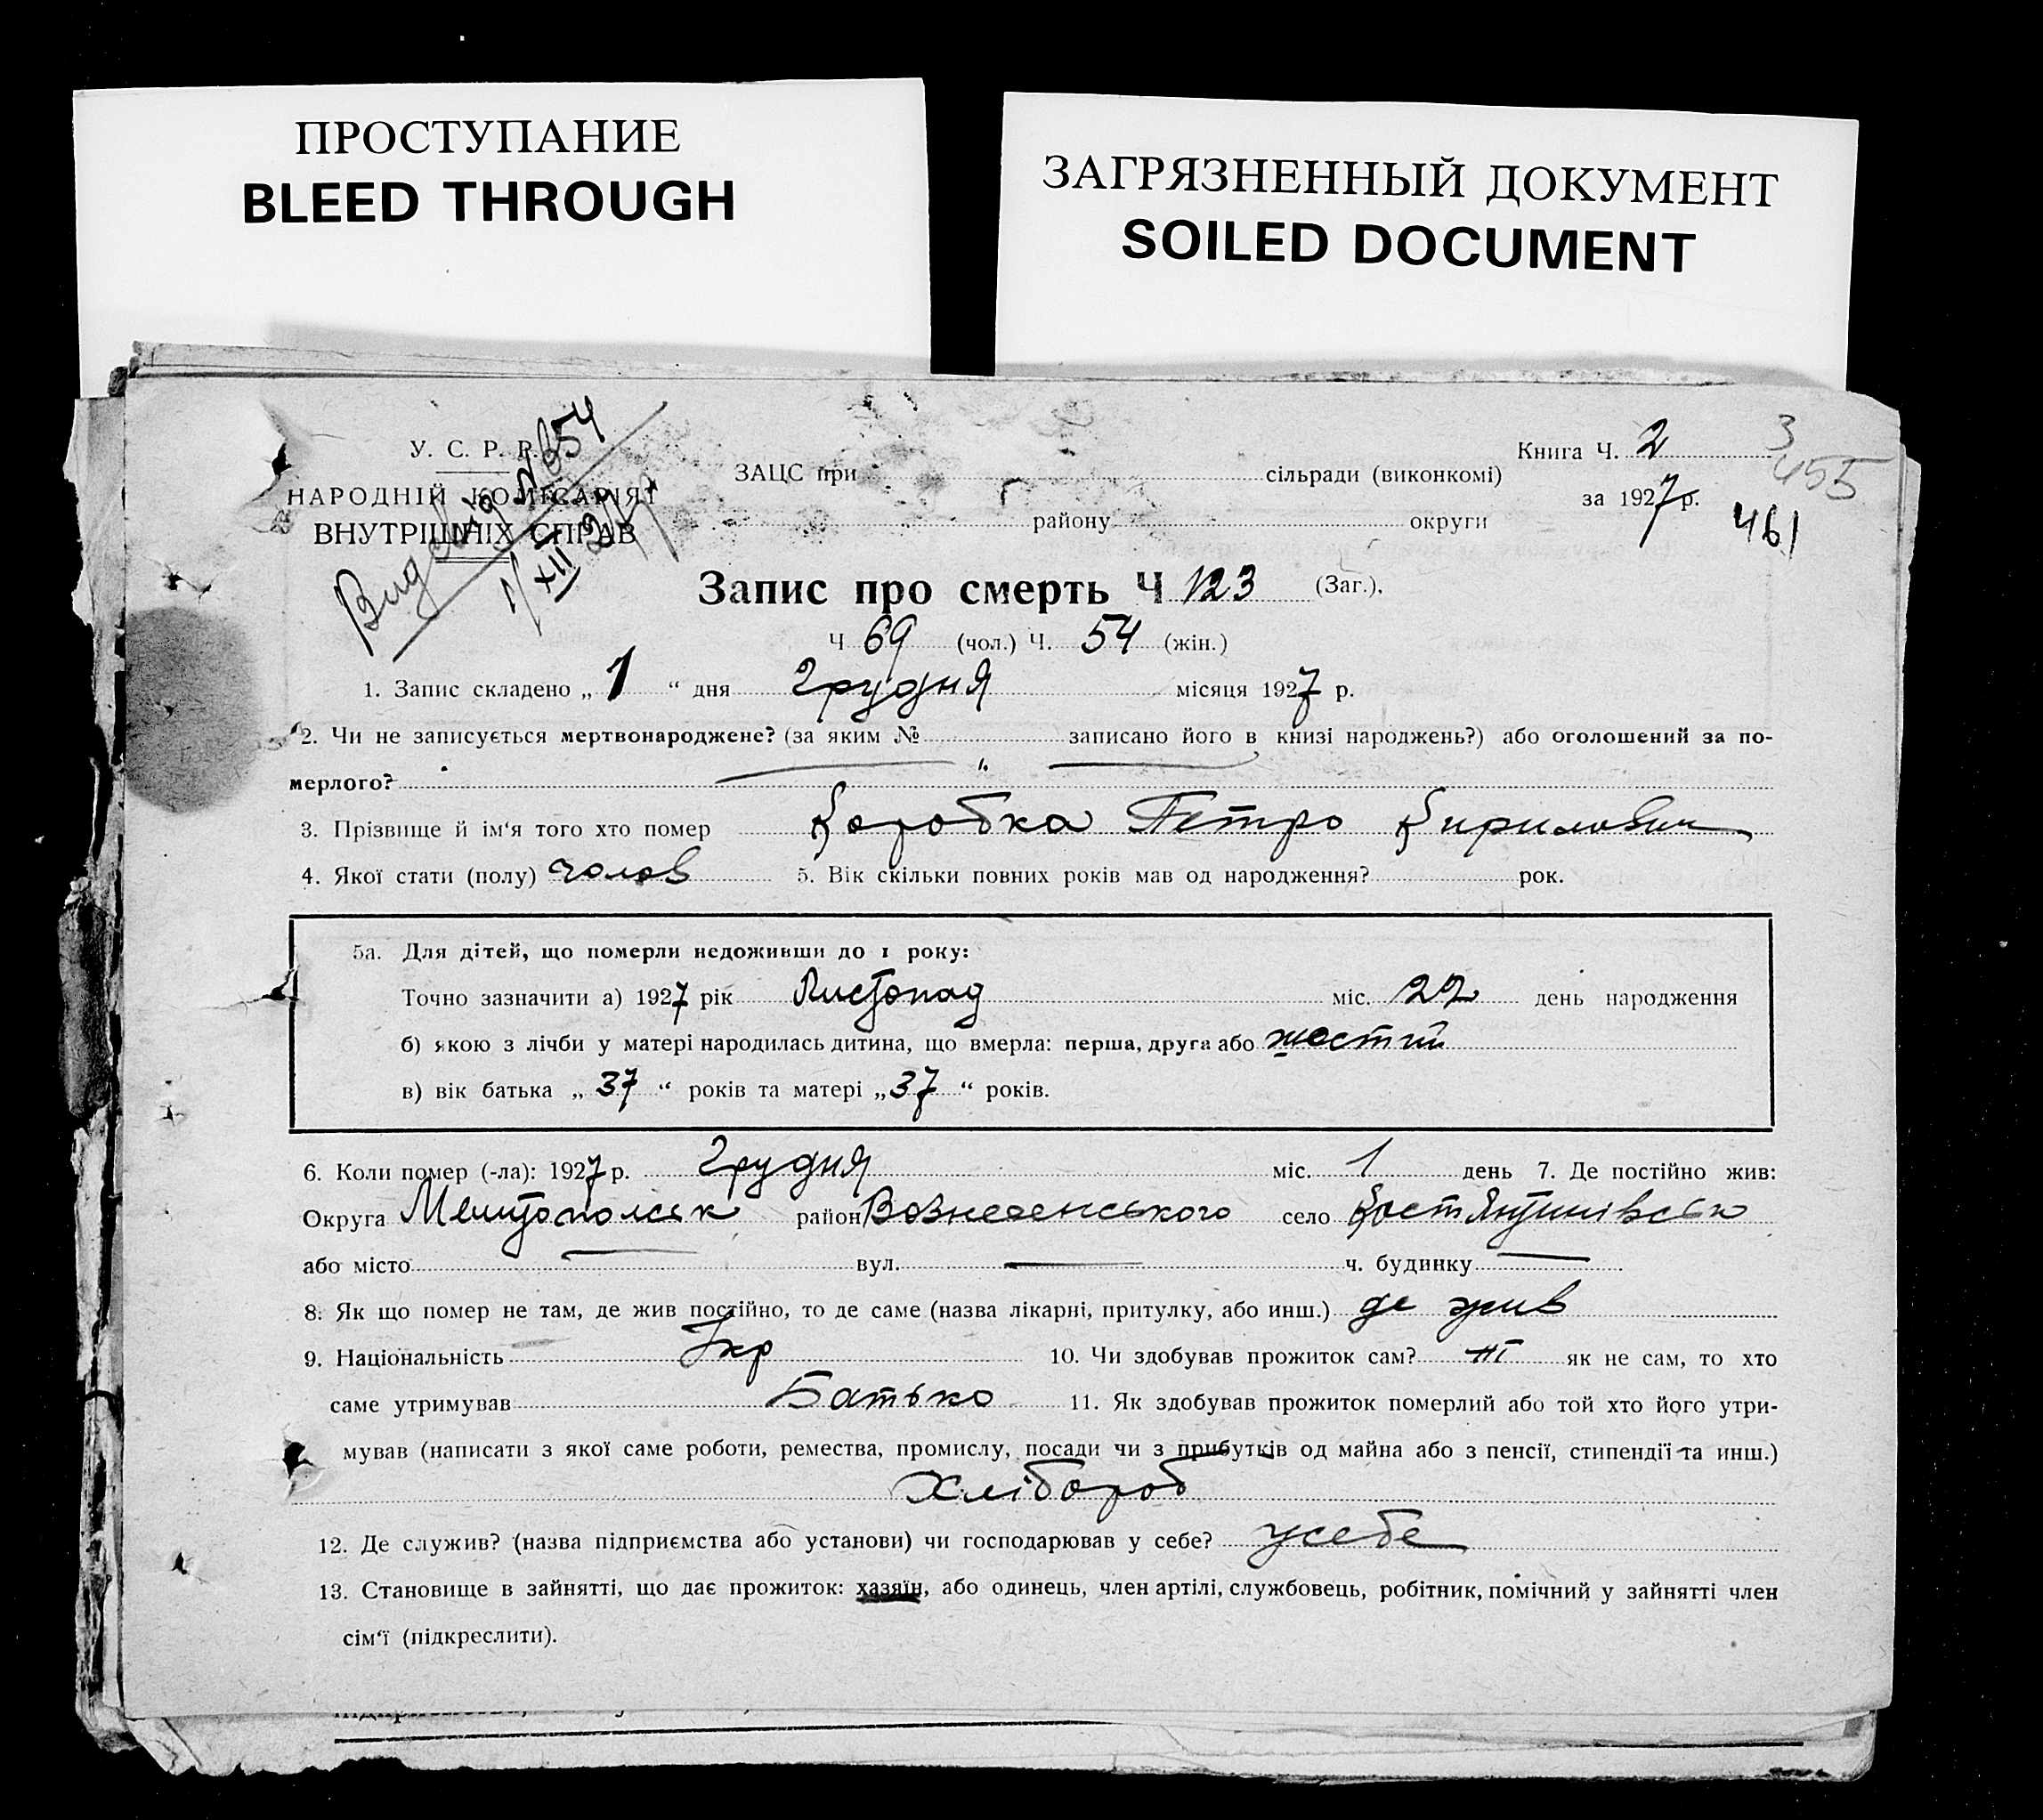 ПРОСТУПАНИЕ
BLEED THROUGH
ЗАГРЯЗНЕННЫЙ ДОКУМЕНТ
SOILED DOCUMENT
У. С. Р. Р.
НАРОДНІЙ КОМІСАРІЯТ
ВНУТРІШНІХ СПРАВ
ЗАЦС при сільради (виконкомі)
району округи
Книга Ч. 2
за 1927 р.
3
455
461
Запис про смерть Ч 123 (Заг.),
Ч 69 (чол.) Ч. 54 (жін.)
1. Запис складено „ 1 “ дня Грудня місяця 1927 р.
2. Чи не записується мертвонароджене? (за яким № записано його в книзі народжень?) або оголошений за по-
мерлого?
3. Прізвище й ім‘я того хто помер Коробка Петро Кирилович
4. Якої стати (полу) чолов 5. Вік скільки повних років мав од народження? рок.
5а. Для дітей, що померли недоживши до 1 року:
Точно зазначити а) 1927 рік Листопад міс. 22 день народження
б) якою з лічби у матері народилась дитина, що вмерла: перша, друга або шостий
в) вік батька „ 37 “ років та матері „ 37 “ років.
6. Коли помер (-ла): 1927 р. Грудня міс. 1 день 7. Де постійно жив:
Округа район Вознесенського село
або місто вул. ч. будинку
8. Як що помер не там, де жив постійно, то де саме (назва лікарні, притулку, або инш.) де жив
9. Національність Укр 10. Чи здобував прожиток сам? ні як не сам, то хто
саме утримував Батько 11. Як здобував прожиток померлий або той хто його утри-
мував (написати з якої саме роботи, ремества, промислу, посади чи з прибутків од майна або з пенсії, стипендії та инш.)
Хлібороб
12. Де служив? (назва підприємства або установи) чи господарював у себе? усебе
13. Становище в зайнятті, що дає прожиток: хазяїн, або одинець, член артілі, службовець, робітник, помічний у зайнятті член
сім‘ї (підкреслити).